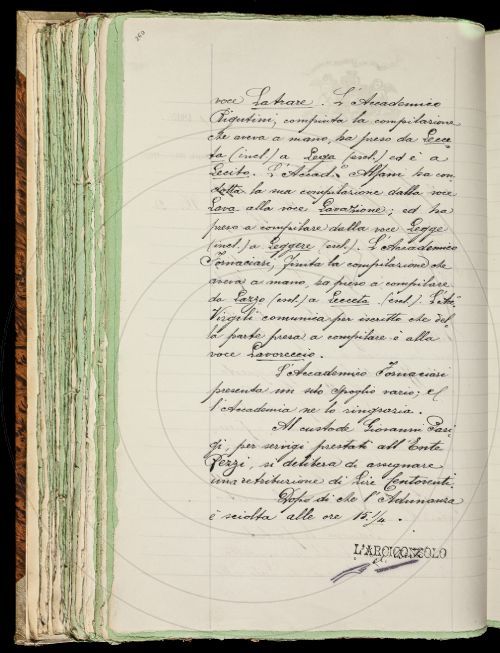 260
voce Latrare. L'Accademico
Rigutini, compiuta la compilazione
che aveva a mano, ha preso da Lecce-
ta (incl.) a Lega (escl.) ed è a
Lecito. L'Accad.º Alfani ha con-
dotta la sua compilazione dalla voce
Lava alla voce Lavazione; ed ha
preso a compilare dalla voce Legge
(incl.) a Leggere (escl.). L'Accademico
Fornaciari, finita la compilazione che
aveva a mano, ha preso a compilare
da Lazzo (escl.) a Lecceta (escl.). L'Ac.º
Virgili comunica per iscritto che del-
la parte presa a compilare è alla
voce Lavoreccio.
L'Accademico Fornaciari
presenta un suo spoglio vario; e
l'Accademia ne lo ringrazia.
Al custode Giovanni Pari-
gi, per servigi prestati all'Ente
Rezzi, si delibera di assegnare
una retribuzione di Lire Centoventi.
Dopo di che l'Adunanza
è sciolta alle ore 15.1/4.
L'ARCICONSOLO